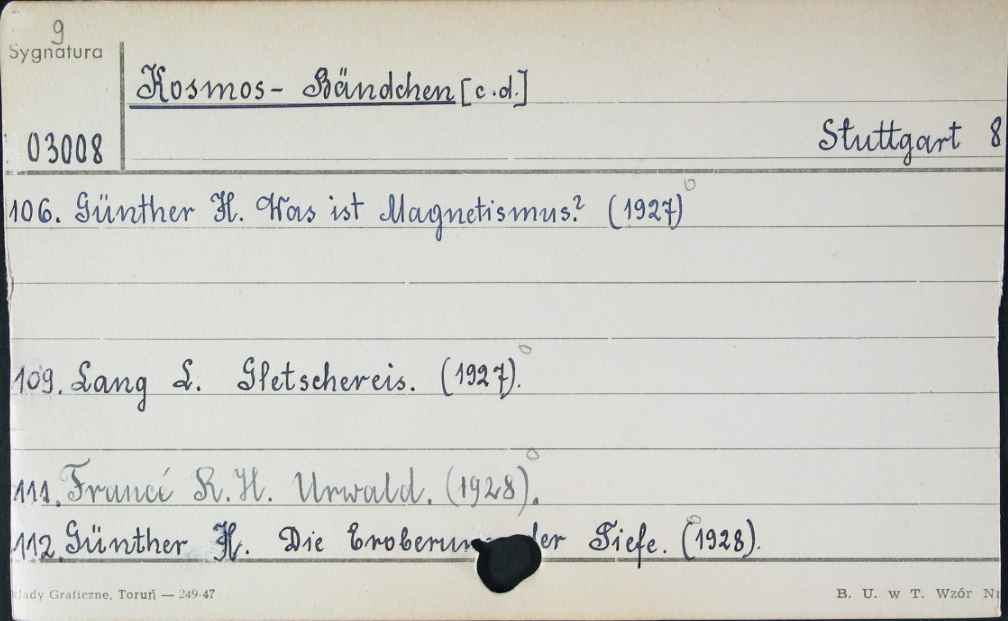 9
Sygnatura
Kosmos-Bändchen [c.d.]
03008
Stuttgart 8
106. Günther H. Was ist Magnetismus? (1927)
109. Lang L. Gletschereis. (1927).
111. Francé R.H. Urwald. (1928).
112. Günther H. Die der Tiefe. (1928).
Graficzne, Toruń — 249-47
B. U. w T. Wzór